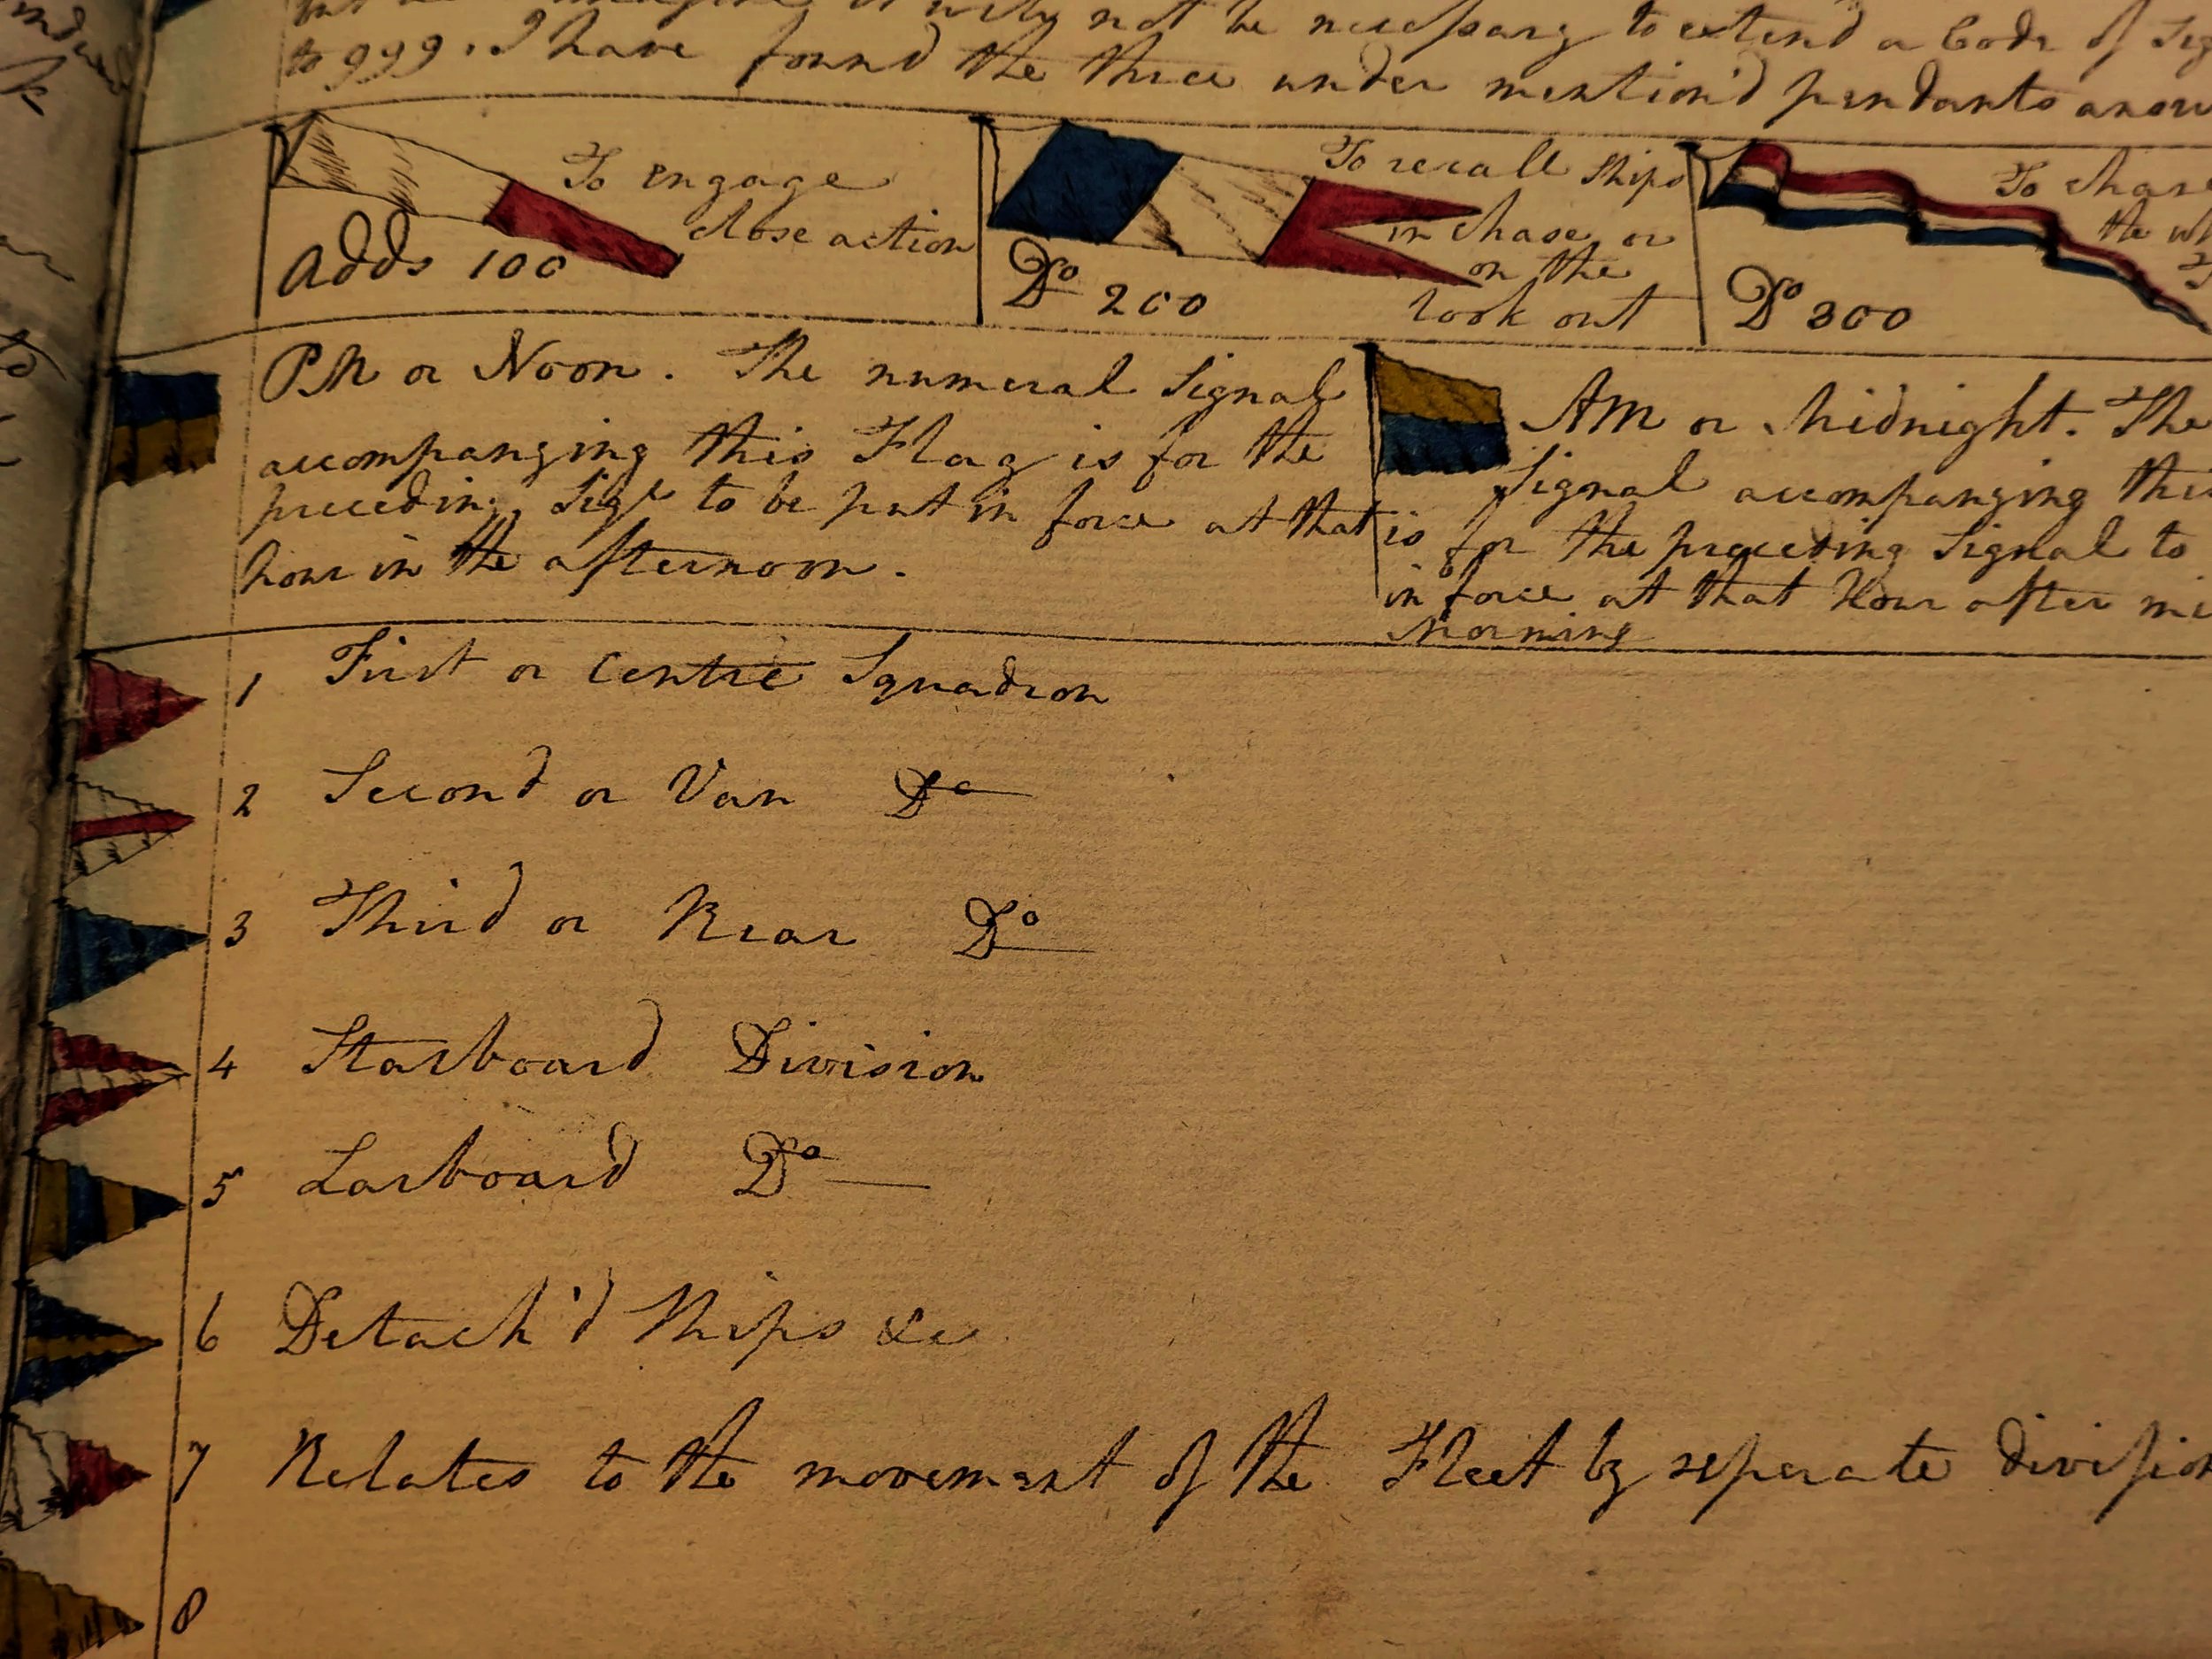 not be necessary to extend a Code of Sig
to 999. I have found the three under mention'd pendants answ
To engage
close action
Adds 100
To recall Ships
in chase or
on the
look out
Do 200
To chase
the wh
Do 300
PM or Noon. The numeral Signal
accompanying this Flag is for the
preceding Sigl to be put in force at that
hour in the afternoon.
AM or Midnight. The
Signal accompanying this
is for the preceding Signal to
in force at that Hour after mi
Morning
1 First or Centre Squadron
2 Second or Van Do
3 Third or Rear Do
4 Starboard Division
5 Larboard Do
6 Detach'd Ships &c
7 Relates to the movement of the Fleet by seperate division
8